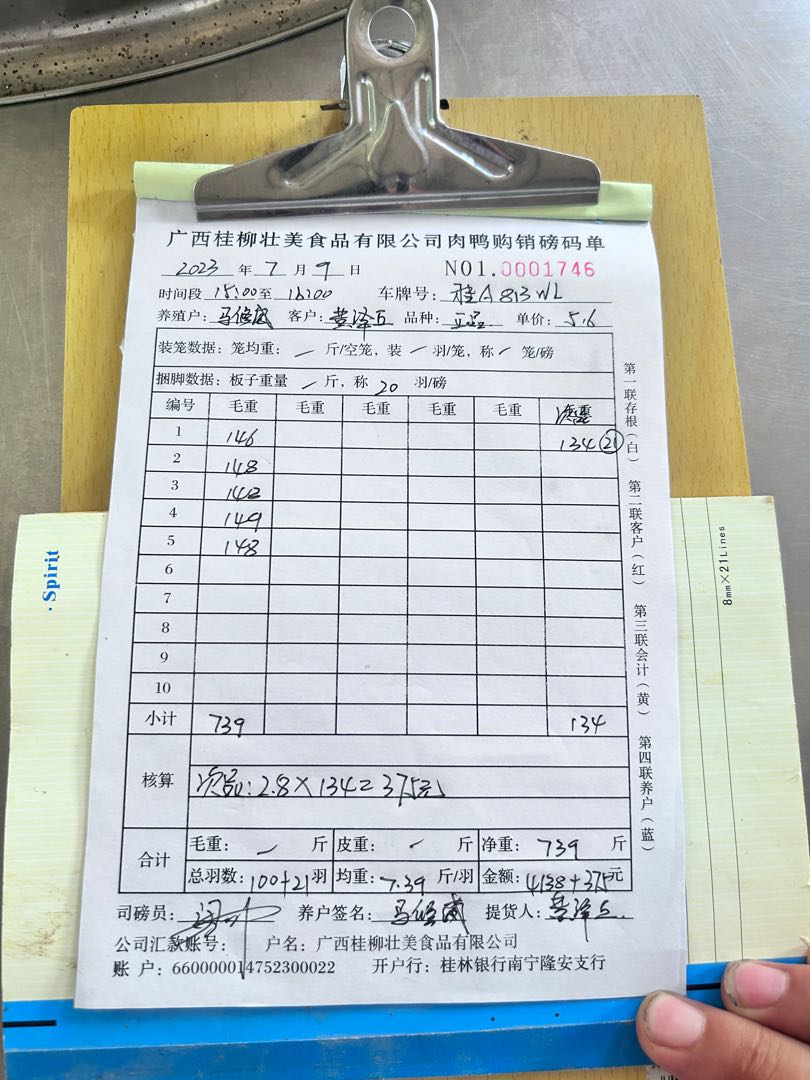 广西桂柳壮美食品有限公司肉鸭购销磅码单
2023 年 7 月 9 日 NO1.0001746
时间段 15:00 至 16:00 车牌号: 桂A 813WL
养殖户: 马 客户: 黄泽 品种: 单价: 5.6
装笼数据: 笼均重: 斤/空笼, 装 羽/笼, 称 笼/磅
捆脚数据: 板子重量 斤, 称 20 羽/磅
编号 毛重 毛重 毛重 毛重 毛重
1 146 134 21
2 148
3 148
4 149
5 148
6
7
8
9
10
小计 739 134
核算 次品: 2.8×134=375元
合计 毛重: 斤 皮重: 斤 净重: 739 斤
总羽数: 100+21 羽 均重: 7.39 斤/羽 金额: 4138+375 元
司磅员: 养户签名: 马 提货人: 黄泽
公司汇款账号: 户名: 广西桂柳壮美食品有限公司
账 户: 660000014752300022 开户行: 桂林银行南宁隆安支行
第一联存根(白) 第二联客户(红) 第三联会计(黄) 第四联养户(蓝)
·Spirit
8mm×21Lines